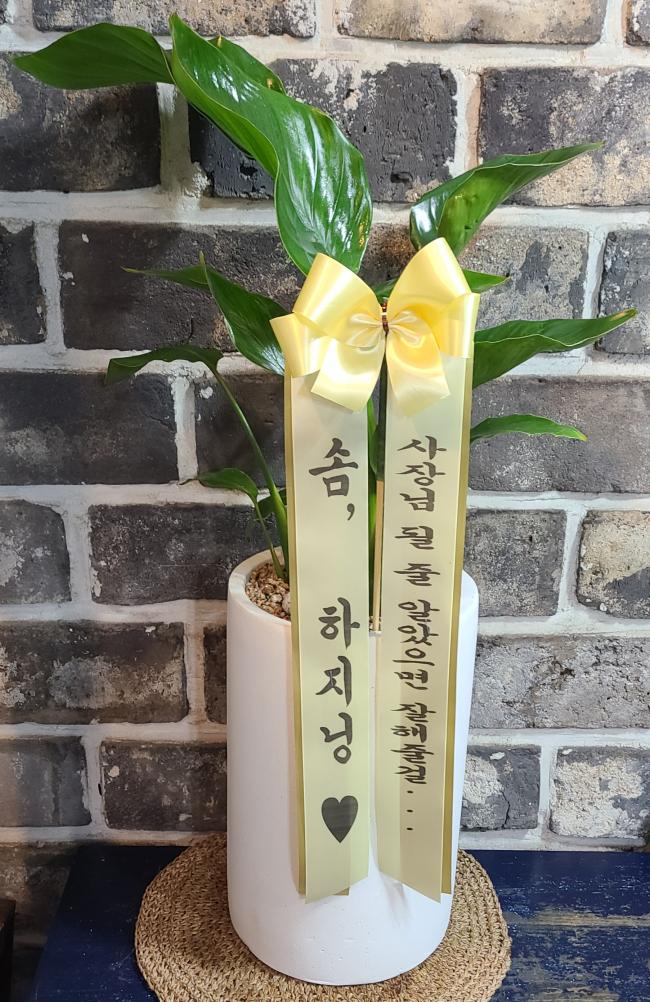 사장님 될 줄 알았으면 잘해줄걸...
솜, 하지닝 ♥